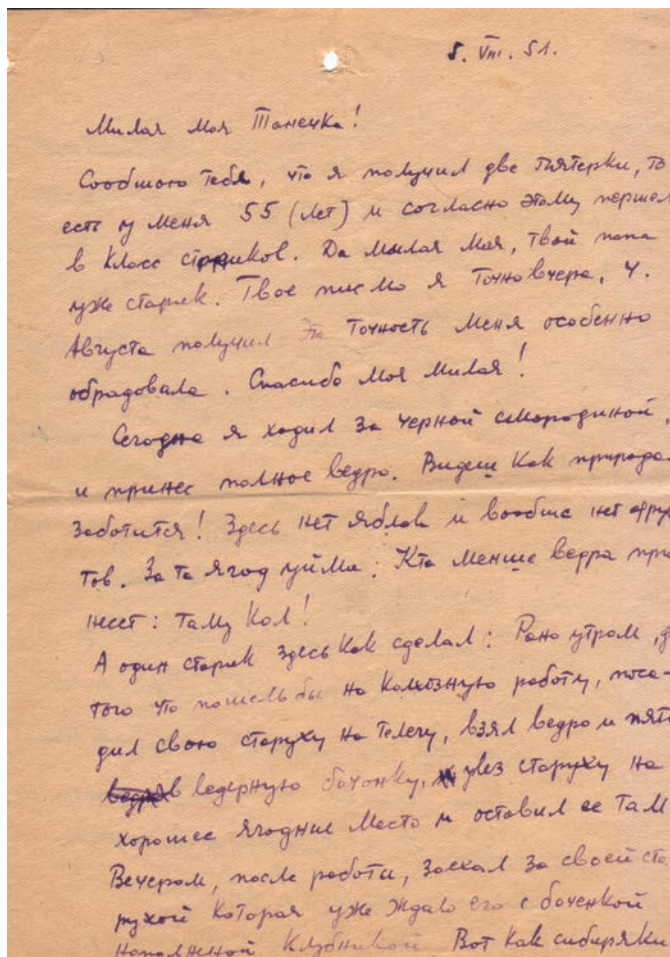 5. VIII. 51.
Милая моя Танечка!
Сообшою тебя, что я получил две пятерки, то
есть у меня 55 (лет) и согласно этому перше
в класс стариков. Да милая моя, твой папа
уже старик. Твое писмо я точно вчера, 4.
Августа получил Эта точность меня особенно
обрадовала. Спасибо моя милая!
Сегодня я ходил за черной смородиной,
и принес полное ведро. Видеш как природа
заботится! Здесь нет яблок и вообше нет фрук
тов. За то ягод уйма: Кто менше ведра при
несет: таму кол!
А один старик здесь как сделал: Рано утром,
того что пошел бы на колхозную работу, поса-
дил свою старуху на телегу, взял ведро и пяти
ведерную бочонку, увез старуху на
хорошее ягодние место и оставил ее там
Вечером, после работи, заехал за своей ста
рухой которая уже ждало его с боченкой
наполнной клубникой. Вот как сибиряки